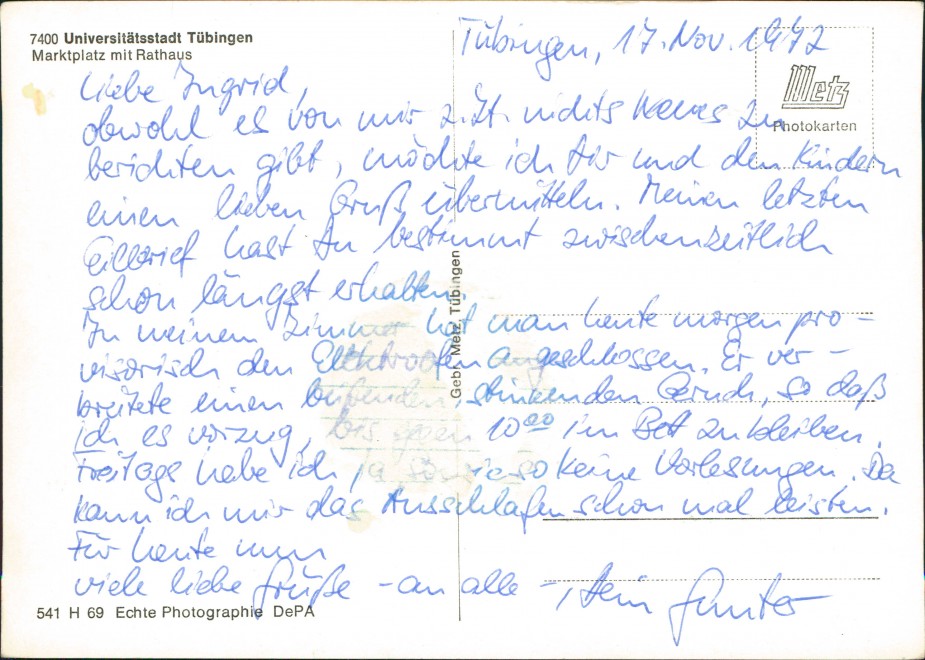 7400 Universitätsstadt Tübingen
Marktplatz mit Rathaus
Tübingen, 17. Nov. 1972
Metz
Photokarten
Liebe Ingrid,
obwohl es von mir z. Zt. nichts Neues zu
berichten gibt, möchte ich Dir und den Kindern
einen lieben Gruß übermitteln. Meinen letzten
Eilbrief hast Du bestimmt zwischenzeitlich
schon längst erhalten.
In meinem Zimmer hat man heute morgen pro-
visorisch den Elektroofen angeschlossen. Er ver-
breitete einen beißenden, stinkenden Geruch, so daß
ich es vorzug, bis gegen 10⁰⁰ im Bett zu bleiben.
Freitags habe ich ja sowieso keine Vorlesungen. Da
kann ich mir das Ausschlafen schon mal leisten.
Für heute nun
viele liebe Grüße - an alle -, Dein Günter
Gebr. Metz, Tübingen
541 H 69 Echte Photographie DePA